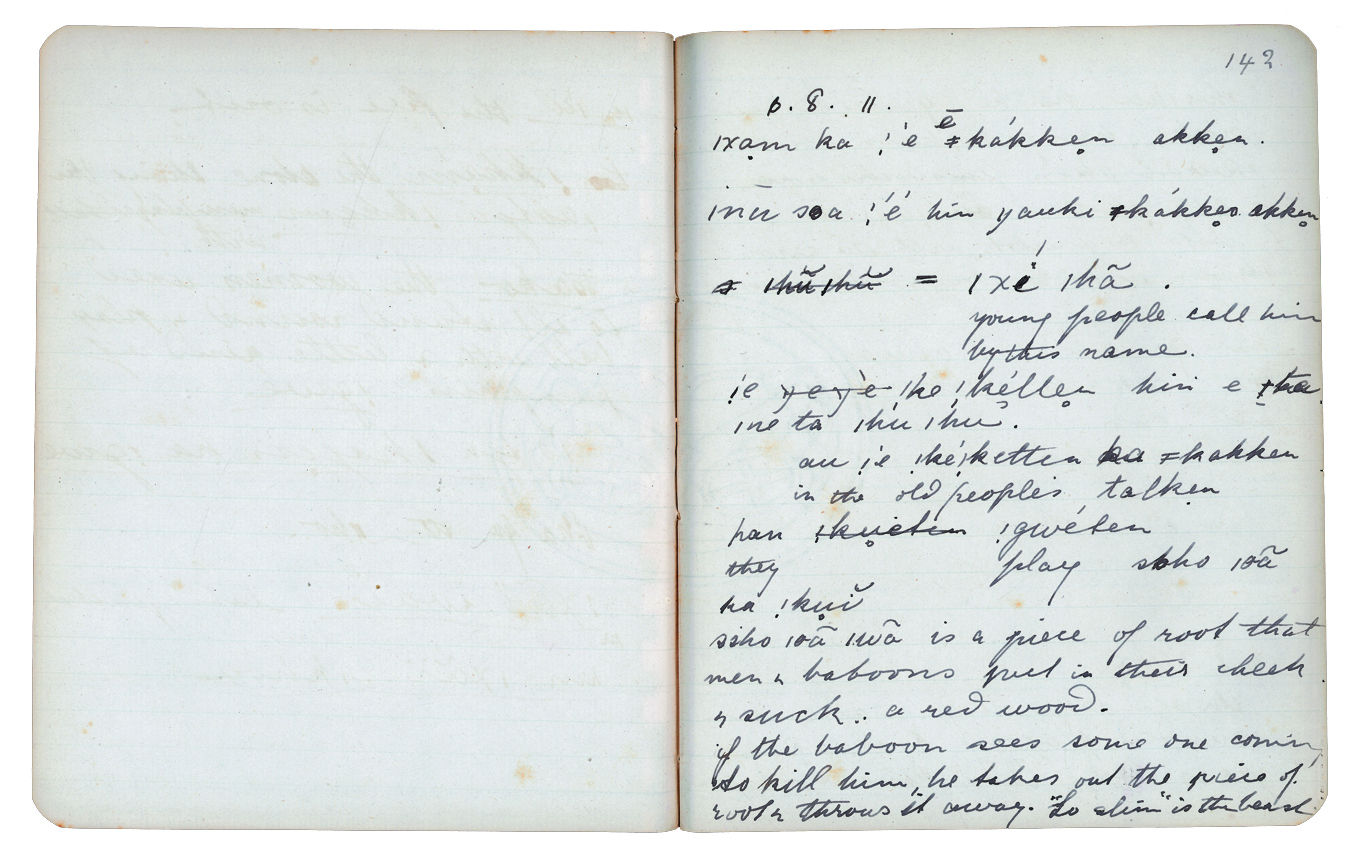 142
6. 8. 11.
ǀxạm ka ǃ'é ē ǂkákkẹn akkẹn.
ǀnū sa ǃ'é hin yauki ǂkákkẹn akkẹn
= ǀxé ǀhã.
young people call him
by this name.
ǃe ǀke ǃkéllẹn hin e
ǀne ta ǀhú ǀhú.
au ǃe ǃkéǃketten ka ǂkakken
in the old people's talken
han ǃgwéten
they play ssho ǀoã
ka ǃkụĭ
ssho ǀoã ǀwã is a piece of root that
men & baboons put in their cheek
& suck.. a red wood.
if the baboon sees some one comin
to kill him, he takes out the piece of
root & throws it away. "So slim" is the beast